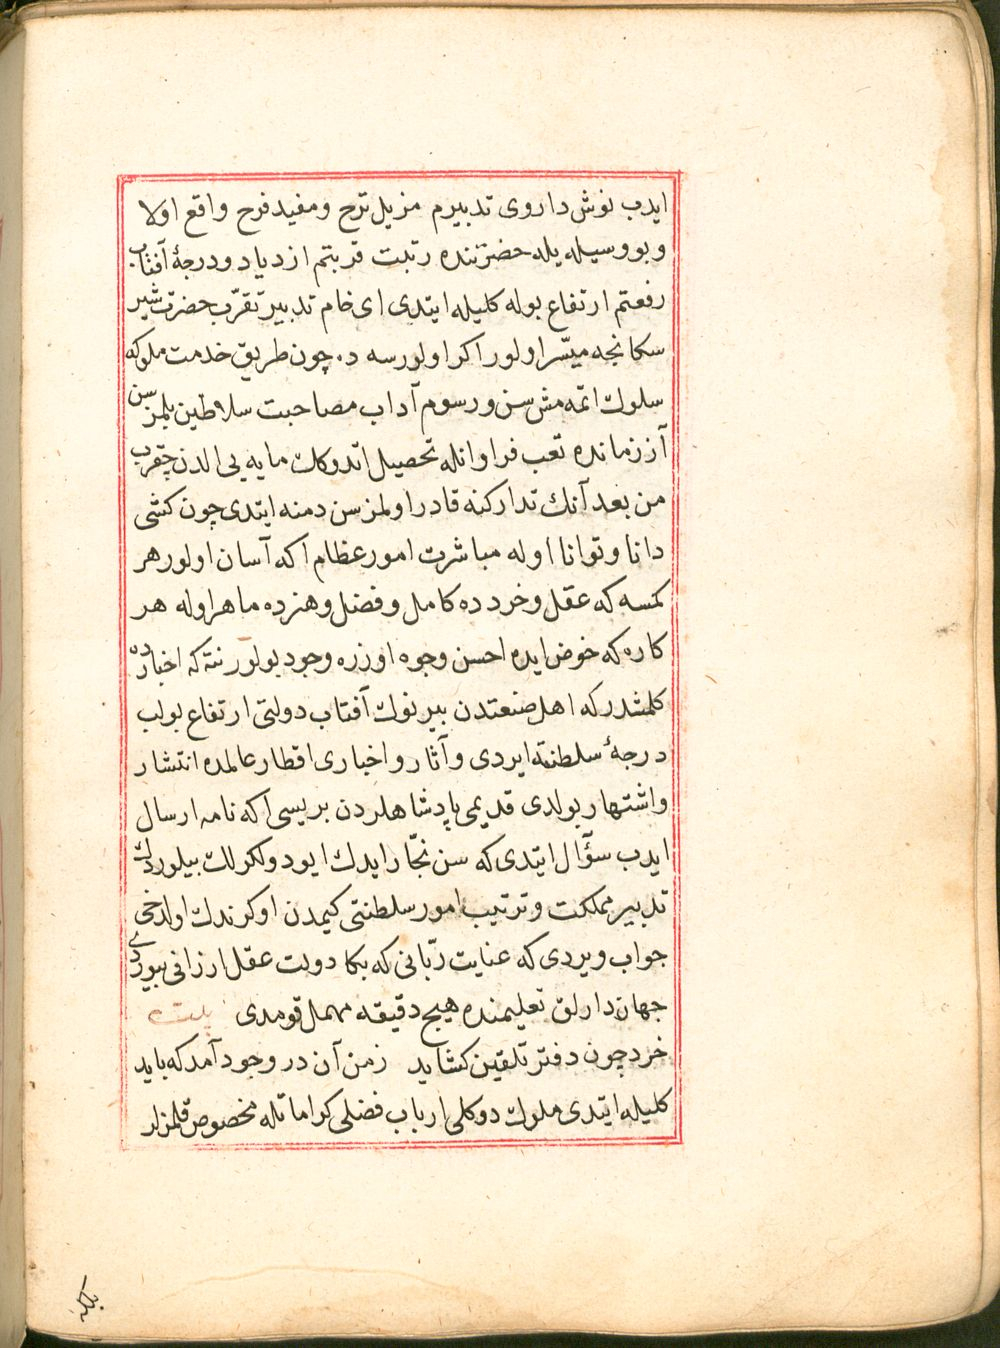 ایدب نوش داروی تدبیرم مزیل ترح و مفید فرح واقع اولا
و بو وسیله یله حضرتنده رتبت قربتم ازدیاد و درجۀ آفتاب
رفعتم ارتفاع بوله کلیله ایتدی ای خام تدبیر تقرّب حضرت شیر
سکا نجه میسّر اولور اکر اولورسه ده چون طریق خدمت ملوکه
سلوک اتمه مش سن و رسوم آداب مصاحبت سلاطین بلمزسن
آز زمانده تعب فراوانله تحصیل اتدوکك مایه یی الدن چقرب
من بعد آنك تدارکنه قادر اولمزسن دمنه ایتدی چون کشی
دانا و توانا اوله مباشرت امور عظام اکه آسان اولور هر
کمسه که عقل و خرد ده کامل و فضل و هنرده ماهر اوله هر
کاره که خوض ایده احسن وجوه اوزره وجود بولور نته که اخبارده
کلمشدر که اهل صنعتدن بیرنوك آفتاب دولتی ارتفاع بولب
درجۀ سلطنته ایردی و آثار و اخباری اقطار عالمده انتشار
و اشتهار بولدی قدیمی پادشاهلردن بریسی اکه نامه ارسال
ایدب سؤال ایتدی که سن نجّار ایدك ایو دولکرلك بیلوردك
تدبیر مملکت و ترتیب امور سلطنتی کیمدن اوکرندك اولدخی
جواب ویردی که عنایت ربّانی که بکا دولت عقل ارزانی بیوردی
جهاندارلق تعلیمنده هیچ دقیقه مهمل قومدی بیت
خرد چون دفتر تلقین کشاید زمن آن در وجود آمد که باید
کلیله ایتدی ملوك دوکلی ارباب فضلی کراماتله مخصوص قلمزلر
بلکه